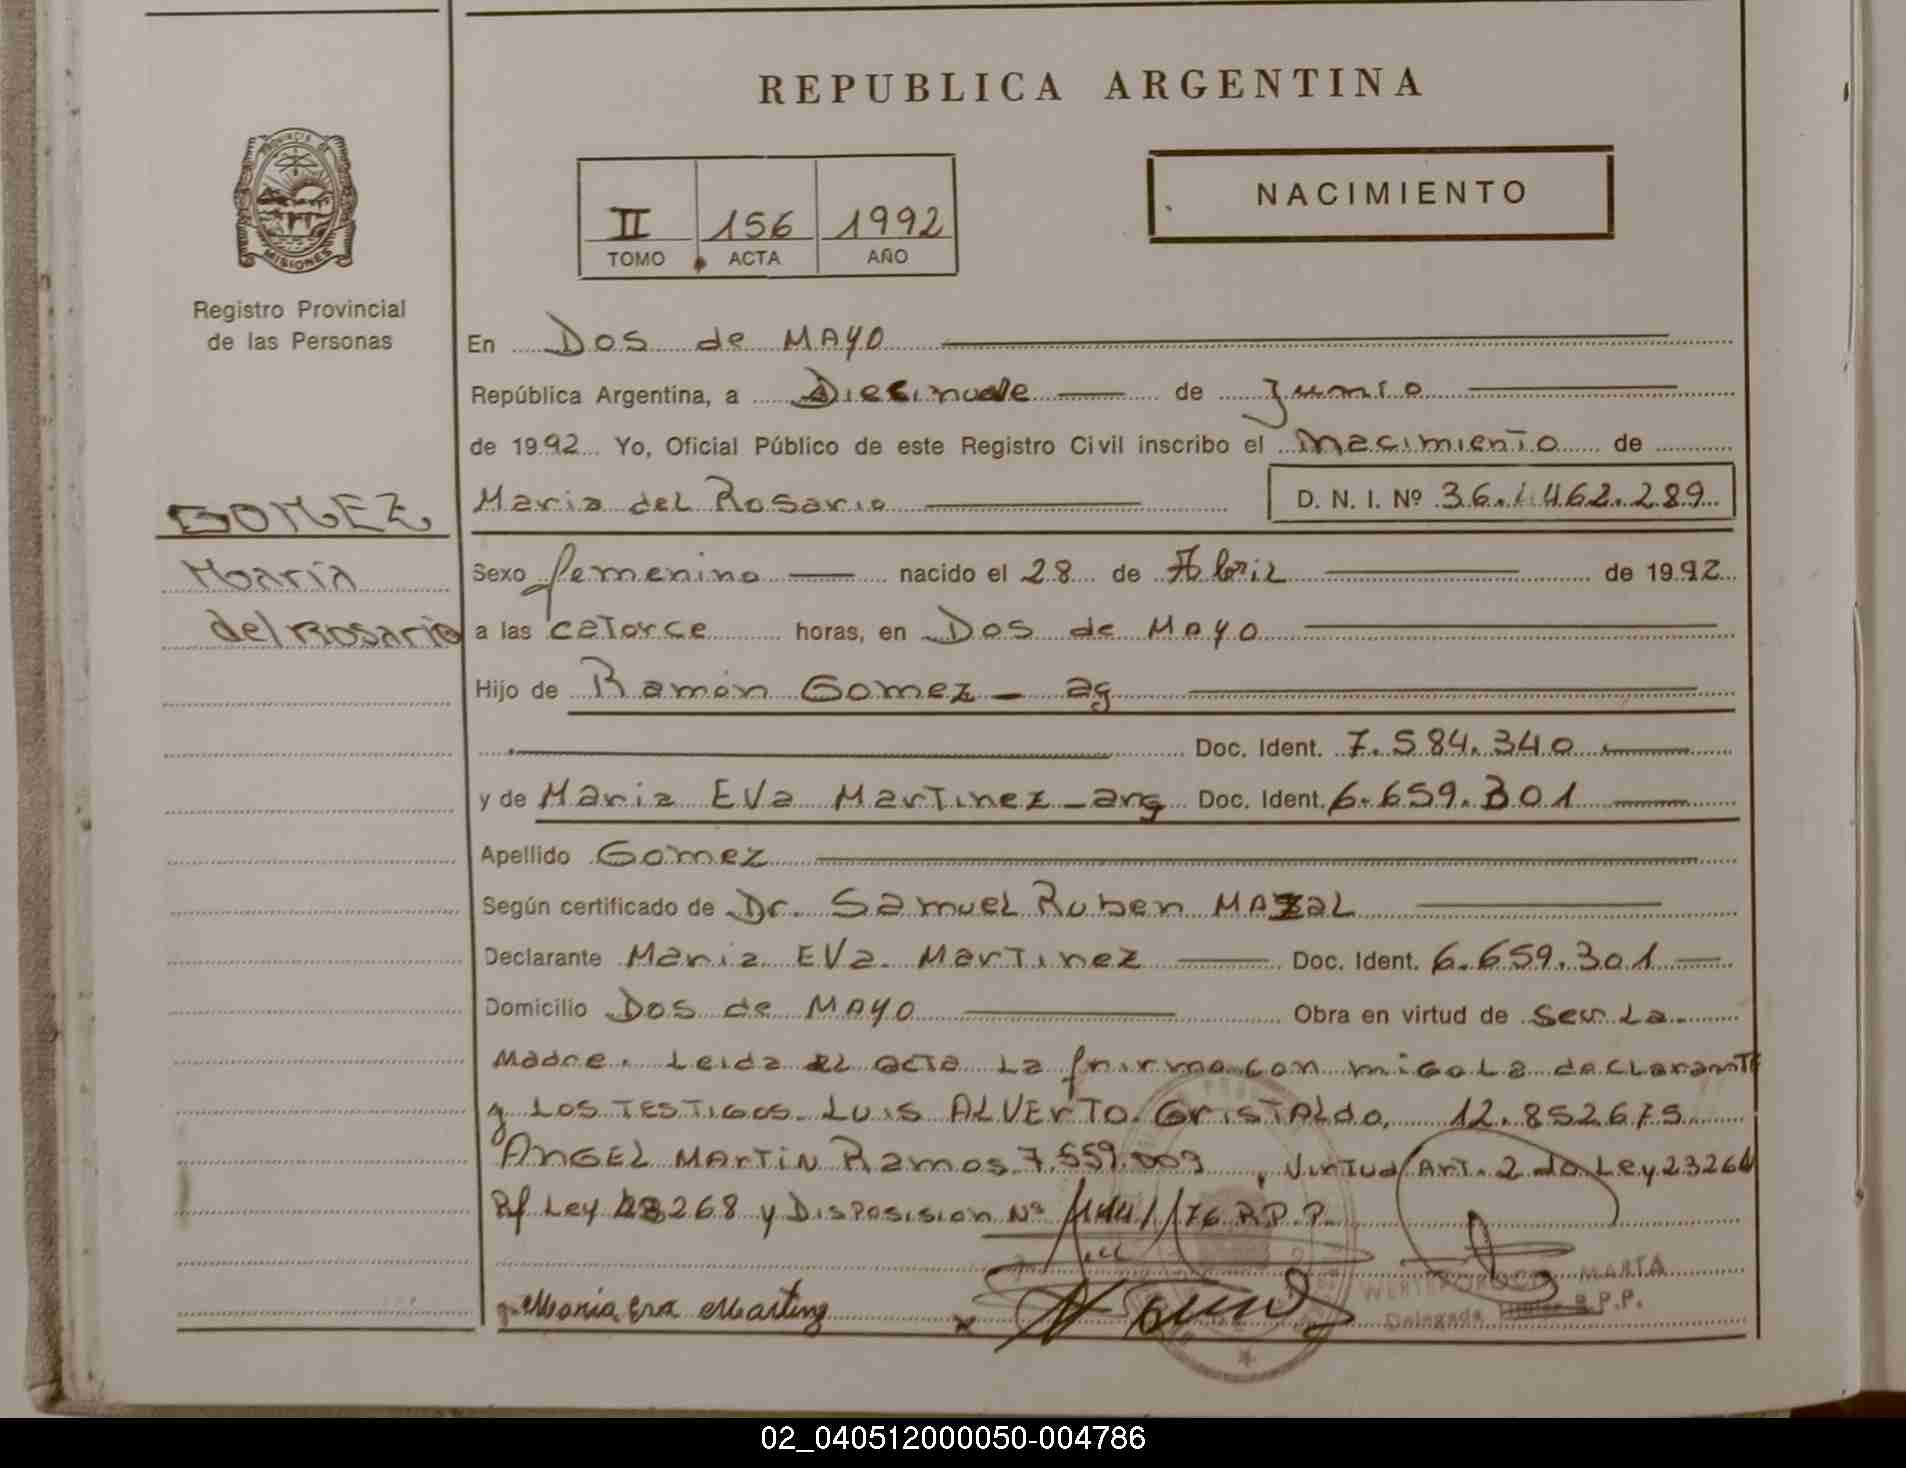 REPUBLICA ARGENTINA
PROVINCIA DE
MISIONES
Registro Provincial
de las Personas
II 156 1992
TOMO ACTA AÑO
NACIMIENTO
En Dos de MAYO
República Argentina, a Diecinueve de Junio
de 1992 Yo, Oficial Público de este Registro Civil inscribo el nacimiento de
Maria del Rosario D. N. I. Nº 36.462.289
GOMEZ
María
del Rosario
Sexo femenino nacido el 28 de Abril de 1992
a las catorce horas, en Dos de Mayo
Hijo de Ramón Gomez - ag
Doc. Ident. 7.584.340
y de Maria EVa Martinez - arg Doc. Ident. 6.659.301
Apellido Gomez
Según certificado de Dr. Samuel Ruben MAZAL
Declarante Maria EVa Martinez Doc. Ident. 6.659.301
Domicilio Dos de MAYO Obra en virtud de Ser La
Madre. Leida el acta La firma con migo La declarante
y Los TESTIGOS. LUIS ALVErTO GrisTALdo, 12.852675
ANGEL MArTiN Ramos 7.559.009, VirTud ArT. 2 do Ley 23264
Ley 23268 y DisPosision Nº /76 R.P.P.
Maria Eva Marting
x
MARTA
Delegada R.P.P.
02_040512000050-004786